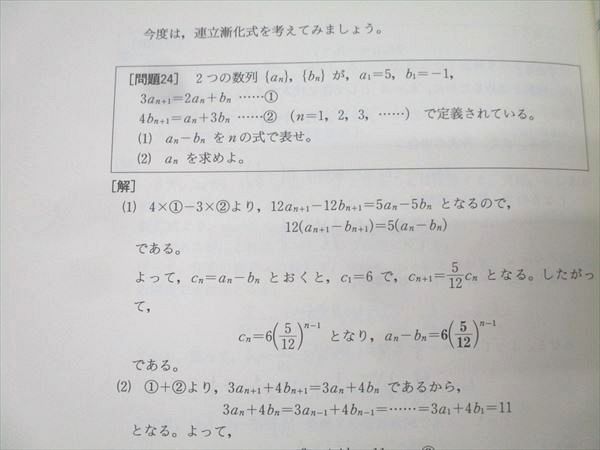 今度は，連立漸化式を考えてみましょう。
[問題24] 2つの数列 {aₙ}，{bₙ} が，a₁=5，b₁=−1，
3aₙ₊₁=2aₙ+bₙ ……①
4bₙ₊₁=aₙ+3bₙ ……② (n=1，2，3，……) で定義されている。
(1) aₙ−bₙ を n の式で表せ。
(2) aₙ を求めよ。
[解]
(1) 4×①−3×②より，12aₙ₊₁−12bₙ₊₁=5aₙ−5bₙ となるので，
12(aₙ₊₁−bₙ₊₁)=5(aₙ−bₙ)
である。
よって，cₙ=aₙ−bₙ とおくと，c₁=6 で，cₙ₊₁=5/12 cₙ となる。したがっ
て，
cₙ=6(5/12)ⁿ⁻¹ となり，aₙ−bₙ=6(5/12)ⁿ⁻¹
である。
(2) ①+②より，3aₙ₊₁+4bₙ₊₁=3aₙ+4bₙ であるから，
3aₙ+4bₙ=3aₙ₋₁+4bₙ₋₁=……=3a₁+4b₁=11
となる。よって，